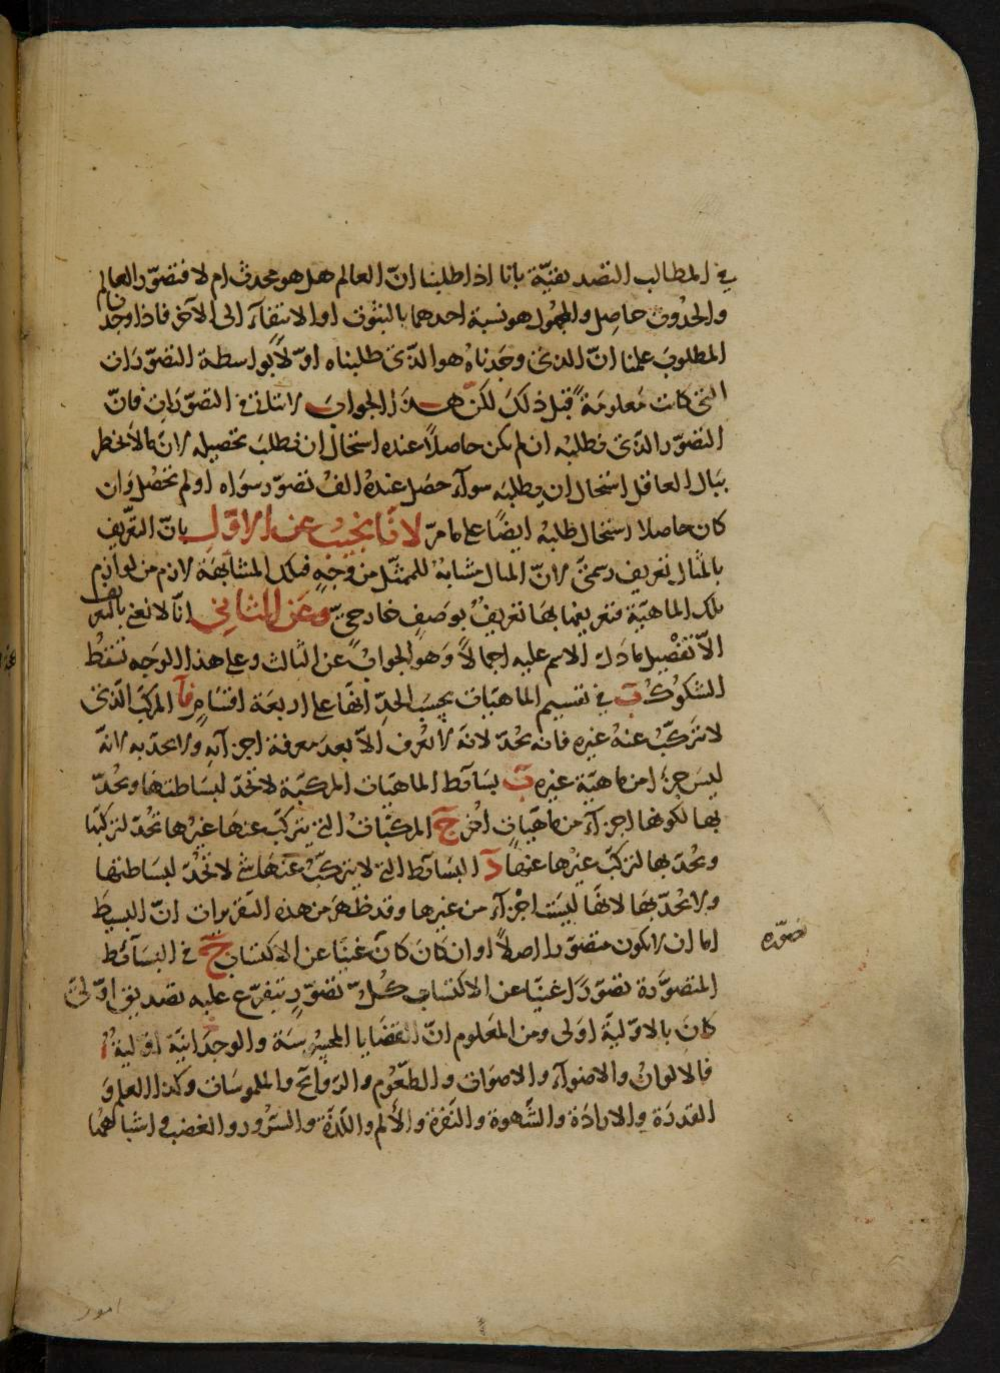 في المطالب التصديقيّة بانا اذا طلبنا انّ العالم هل هو محدث ام لا فتصوّر العالم
والحدوث حاصل والمجهول هو نسبة احدهما بالثبوت او الانتفآء الى الآخر فاذا وجدنا
المطلوب علمنا انّ الذي وجدناه هو الذي طلبناه اوّلا بواسطة التصوّرات
التي كانت معلومةً قبل ذلك لكنّ هذا الجواب لا يتأتى في التصوّرات فانّ
التصوّر الذي نطلبه ان لم يكن حاصلاً عنده استحال ان نطلب تحصيله لانّ ما لا يخطر
ببال العاقل استحال ان يطلبه سوآء حصل عنده الف تصوّر سواه او لم تحصل وان
كان حاصلا استحال طلبه ايضًا على ما مرّ لانّا نجيب عن الاوّل بانّ التعريف
بالمثال تعريف رسميّ لانّ المثال مشابهٌ للممثّل من وجهٍ فتلك المشابهة لازم من لوازم
تلك الماهيّة فتعريفها بها تعريفٌ بوصفٍ خارجيّ وعن الثاني انّا لا نعني بالتعريف
الّا تفصيل ما دلّ الاسم عليه اجمالاً وهو الجواب عن الثالث وعلى هذا الوجه تسقط
الشكوك ب في تقسيم الماهيّات بحسب الحدّ انّها على اربعة اقسامٍ فآ المركب الّذي
لا يتركّب عنه غيره فانه يحدّ لانه لا يعرف الّا بعد معرفة اجزآئه ولا يحدّ به لانّه
ليس جزءًا من ماهيّة غيره ب بسآئط الماهيّات المركبّة لا تحدّ لبساطتها ويحدّ
بها لكونها اجزآء من ماهيّاتٍ اُخر ج المركبّات التي يتركّب عنها غيرها تحدّ لتركبّها
ويحدّ بها لتركبّ غيرها عنها د البسآئط التي لا يتركّب عنها شئ لا تحدّ لبساطتها
ولا يحدّ بها لانها ليست اجزآء من غيرها وقد ظهر من هذه التقريرات انّ البسيط
اما ان لا يكون متصوّرا اصلاً او ان كان كان غنيًا عن الاكتساب ج في البسآئط
تصوّره
المتصوّرة تصوّرًا غنيًا عن الاكتساب كلّ تصوّرٍ يتفرّع عليه تصديق اوّليّ
كان بالاوّليّة اولى ومن المعلوم انّ القضايا المحسوسة والوجدانيّة اوّلية
فالالوان والاضوآء والاصوات والطعوم والروآئح والملموسات وكذا العلم و
القدرة والارادة والشهوة والنفرة والألم واللّذّة والسّرور والغضب واشباهها
امور